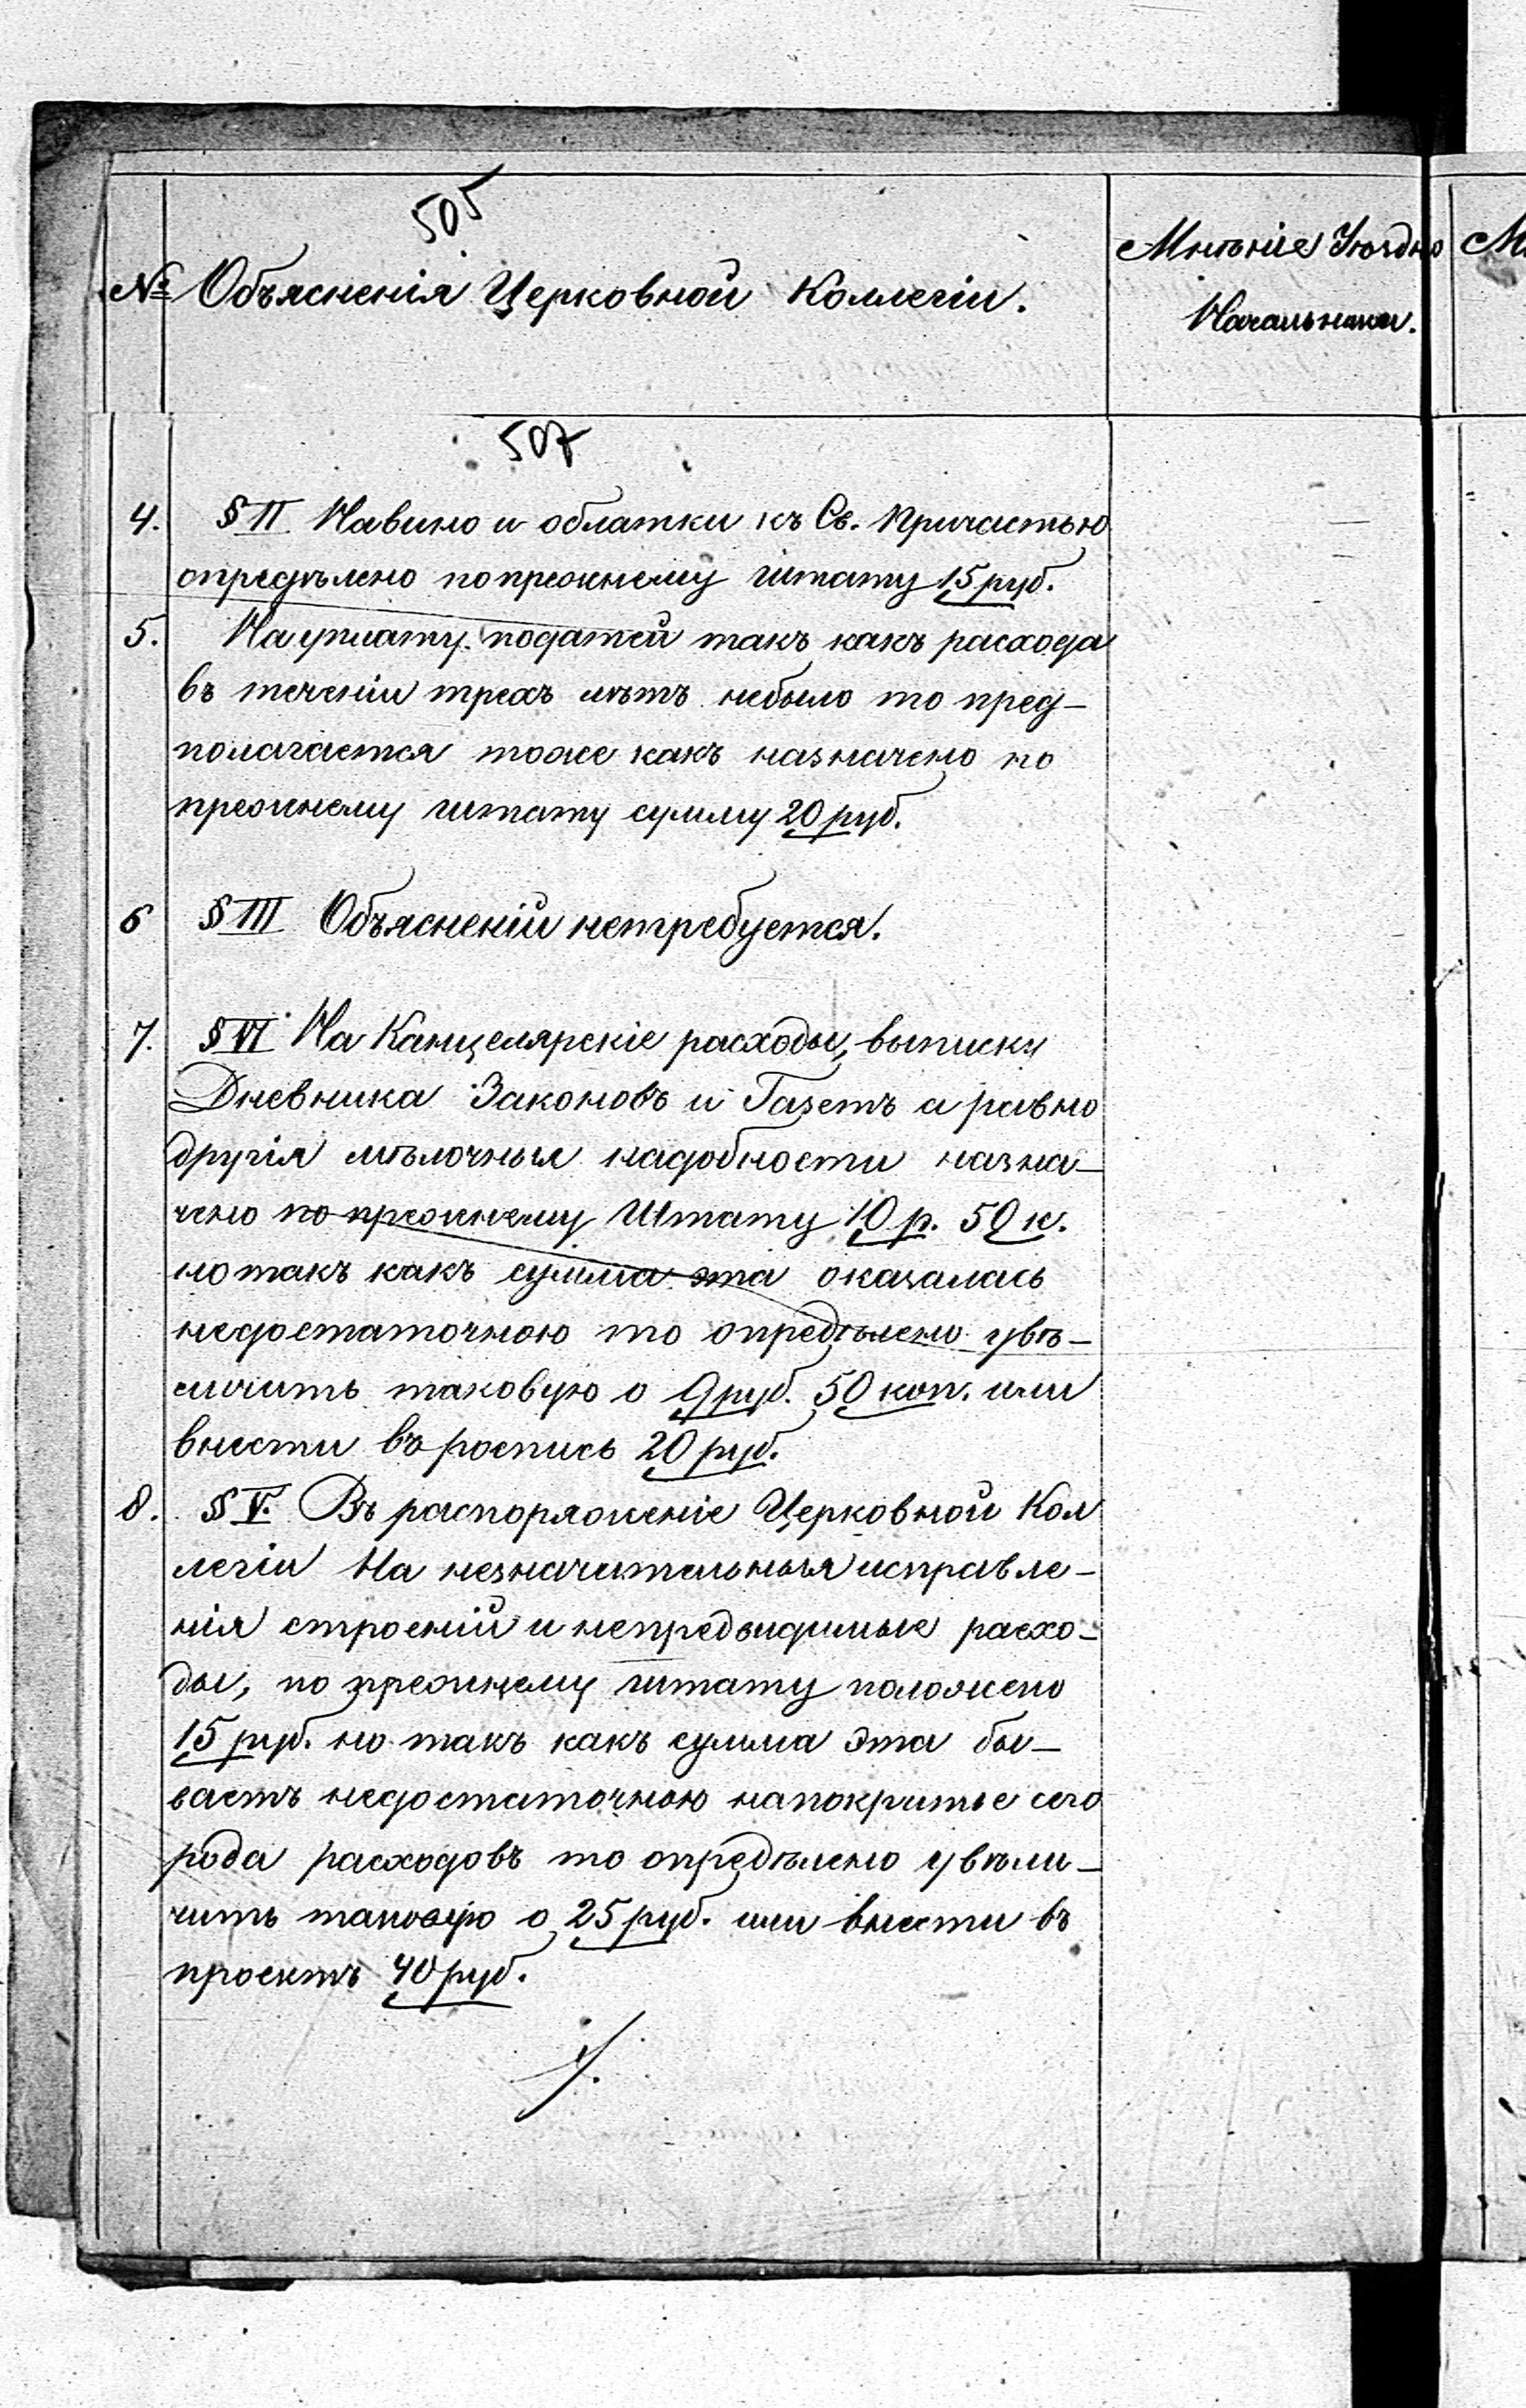 505
№ Объясненія Церковной Коллегіи.
Мнѣніе Уѣздно
Начальника.
М
507
4. § II Навино и облатки къ Св. Причастью
опредѣлено попрежнему штату 15 руб.
5. Науплату податей такъ какъ расхода
въ теченіи трехъ лѣтъ небыло то пред-
полагается тоже какъ назначено по
прежнему штату сумму 20 руб.
6 § III Объясненій нетребуется.
7. § VI На Канцелярскіе расходы, выписку
Дневника Законовъ и Газетъ а равно
другія мѣлочныя надобности назна-
чено по прежнему Штату 10 р. 50 к.
но такъ какъ сумма эта оказалась
недостаточною то опредѣлено увѣ-
личить таковую о 9 руб. 50 коп. или
внести въ роспись 20 руб.
8. § V. Въ распоряженіе Церковной Кол
легіи На незначительныя исправле-
нія строеній и непредвидимые расхо-
ды, по прежнему штату положено
15 руб. но такъ какъ сумма эта бы-
ваетъ недостаточною напокрытье сего
рода расходовъ то опредѣлено увѣли-
чить таковую о 25 руб. или внести въ
проектъ 40 руб.